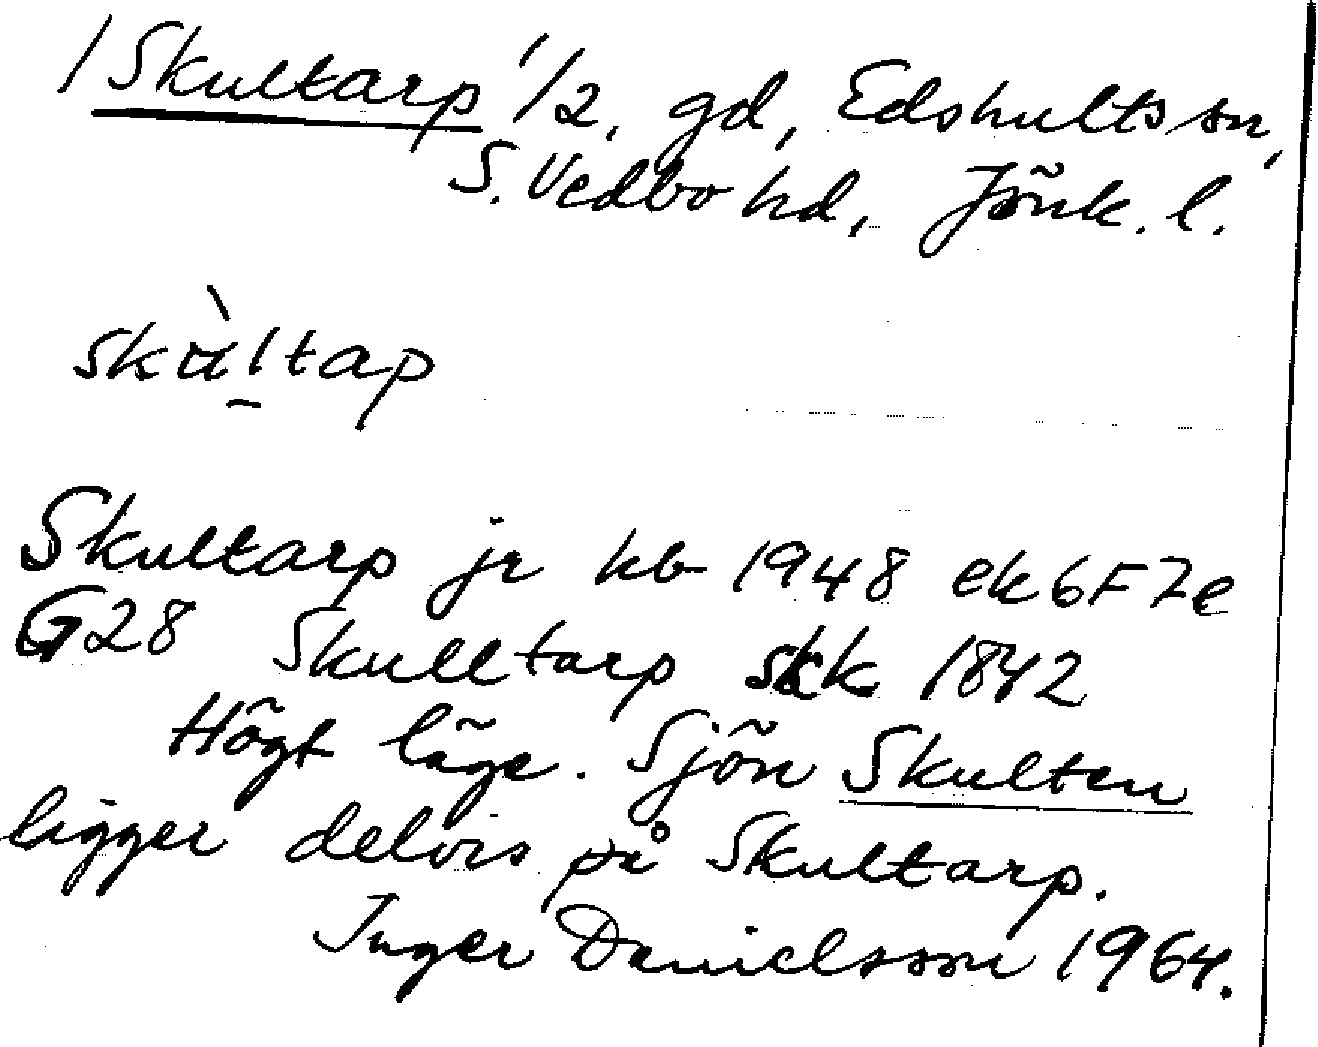 /Skultarp 1/2, gd, Edshults sn,
S. Vedbo hd, Jönk. l.
skùltap
Skultarp jr kb 1948 ek 6F7e
G28 Skulltarp skk 1842
Högt läge. Sjön Skulten
ligger delvis på Skultarp.
Inger Danielsson 1964.